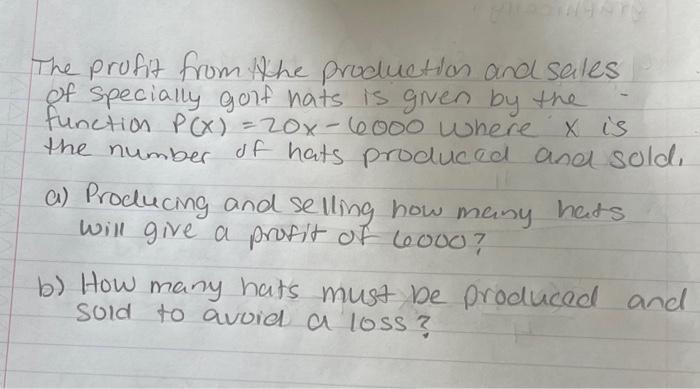 The profit from the production and sales
of specially golf hats is given by the
function P(x) = 20x - 6000 where x is
the number of hats produced and sold.
a) Producing and selling how many hats
will give a profit of 6000?
b) How many hats must be produced and
sold to avoid a loss?